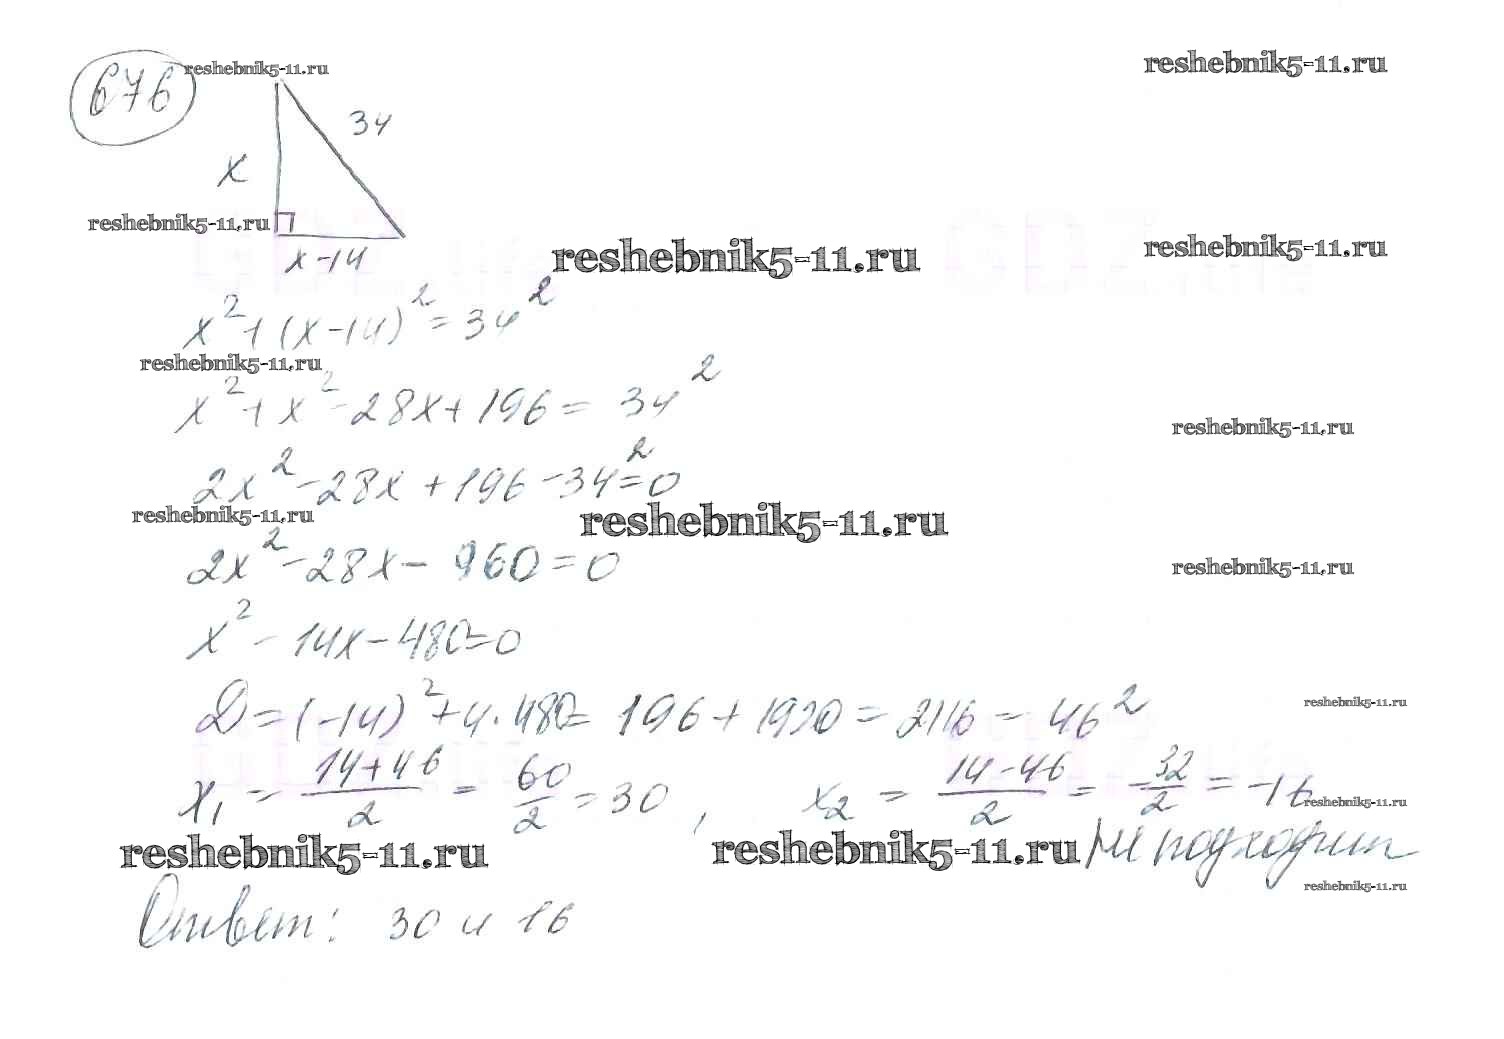 676
reshebnik5-11.ru
reshebnik5-11.ru
34
x
reshebnik5-11.ru
x-14
reshebnik5-11.ru
reshebnik5-11.ru
x²+(x-14)²=34²
reshebnik5-11.ru
x²+x²-28x+196=34²
reshebnik5-11.ru
2x²-28x+196-34²=0
reshebnik5-11.ru
reshebnik5-11.ru
2x²-28x-960=0
reshebnik5-11.ru
x²-14x-480=0
D=(-14)²+4·480=196+1920=2116=46²
reshebnik5-11.ru
x₁=(14+46)/2=60/2=30, x₂=(14-46)/2=-32/2=-16
reshebnik5-11.ru
reshebnik5-11.ru
reshebnik5-11.ru
не подходит
reshebnik5-11.ru
Ответ: 30 и 16